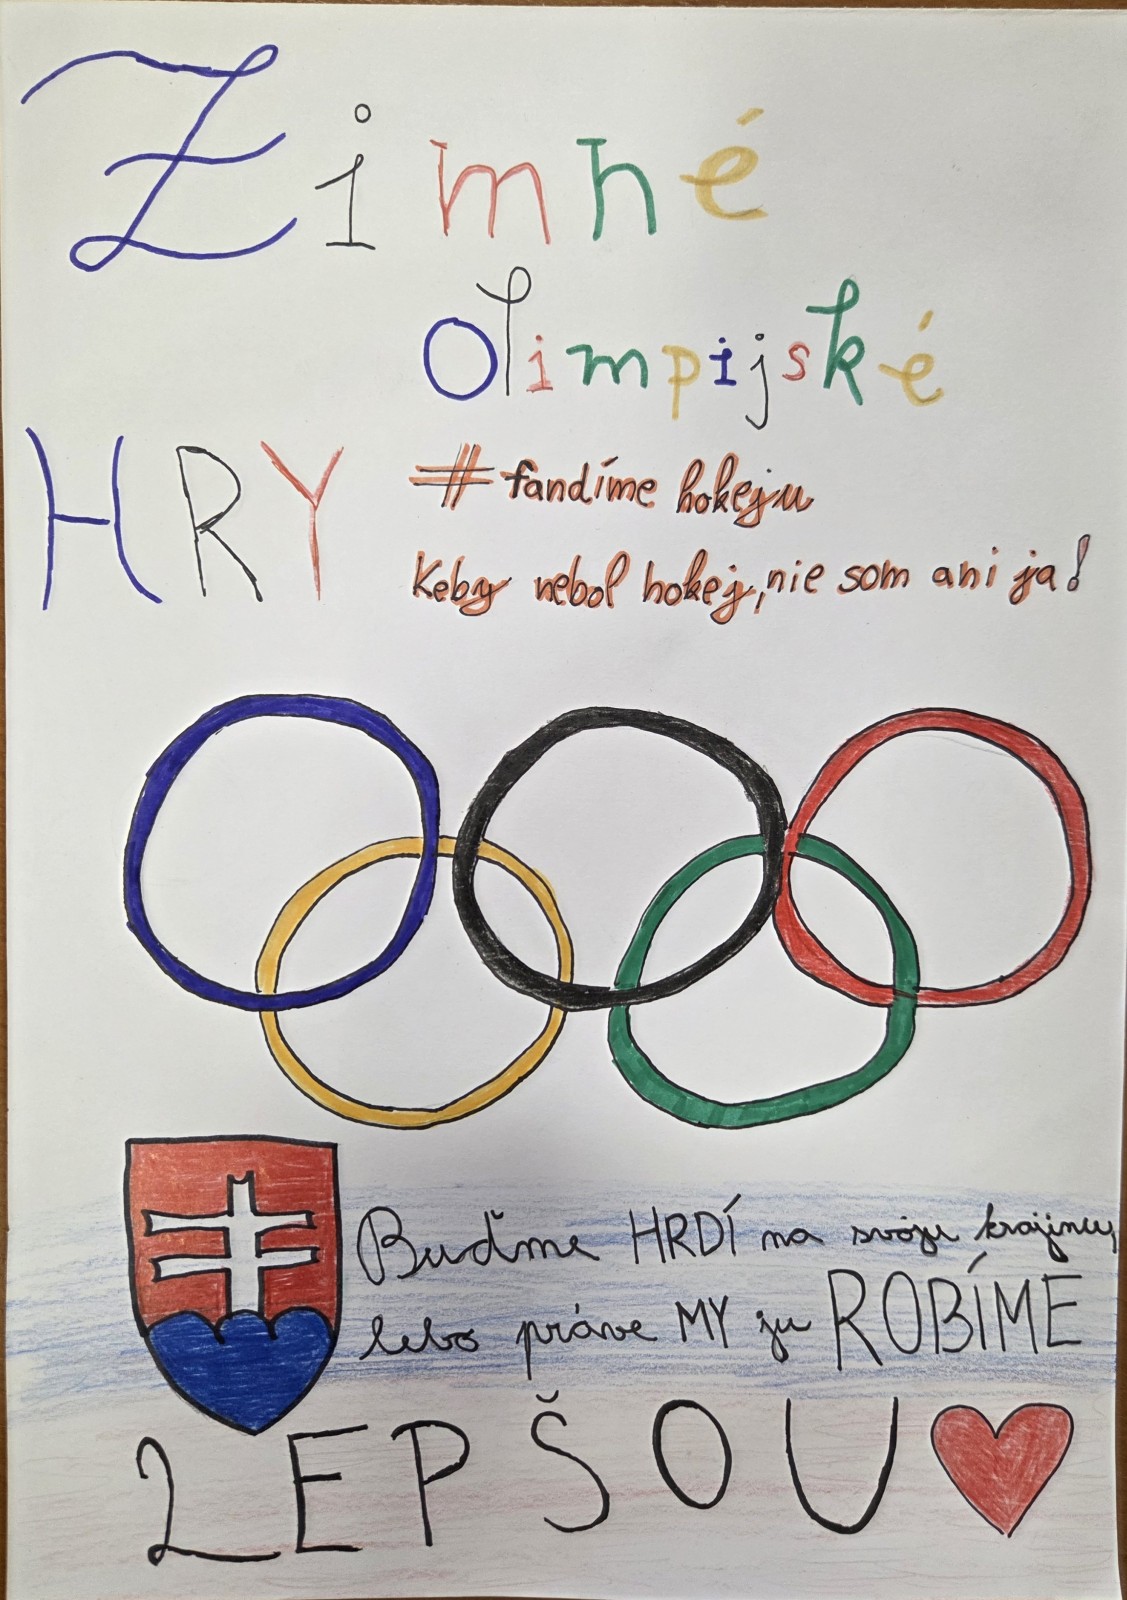 Zimné
olimpijské
HRY
#fandíme hokeju
Keby nebol hokej, nie som ani ja!
Buďme HRDÍ na svoju krajinu,
lebo práve MY ju ROBÍME
LEPŠOU